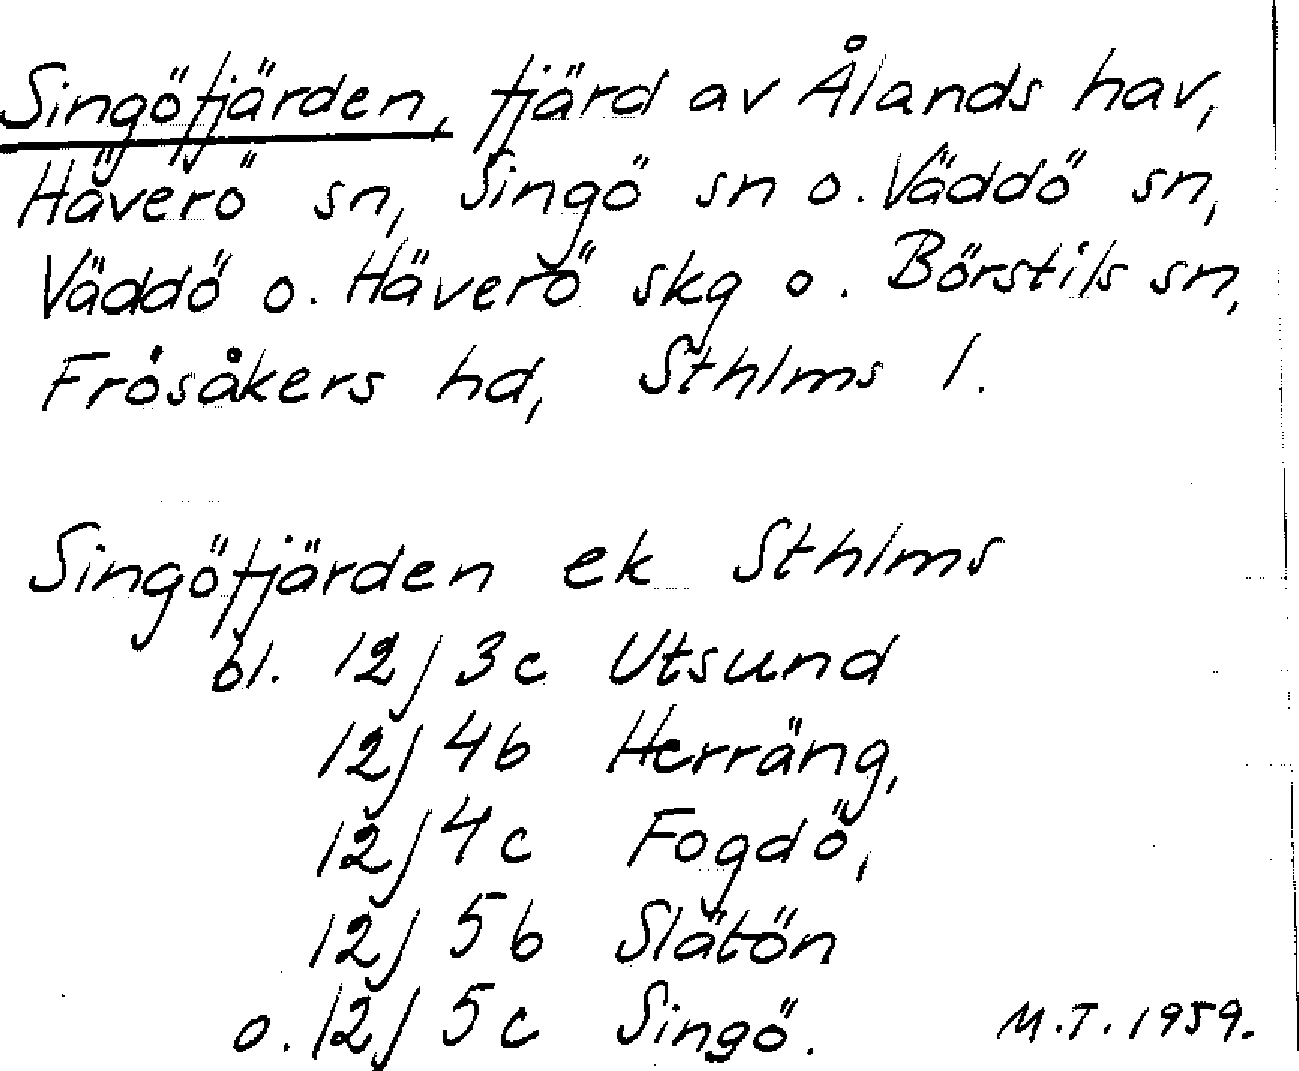 Singöfjärden, fjärd av Ålands hav,
Häverö sn, Singö sn o. Väddö sn,
Väddö o. Häverö skg o. Börstils sn,
Frösåkers hd, Sthlms l.
Singöfjärden ek Sthlms
bl. 12j 3c Utsund
12j 4b Herräng,
12j 4c Fogdö,
12j 5b Slätön
o. 12j 5c Singö.
M.T. 1959.